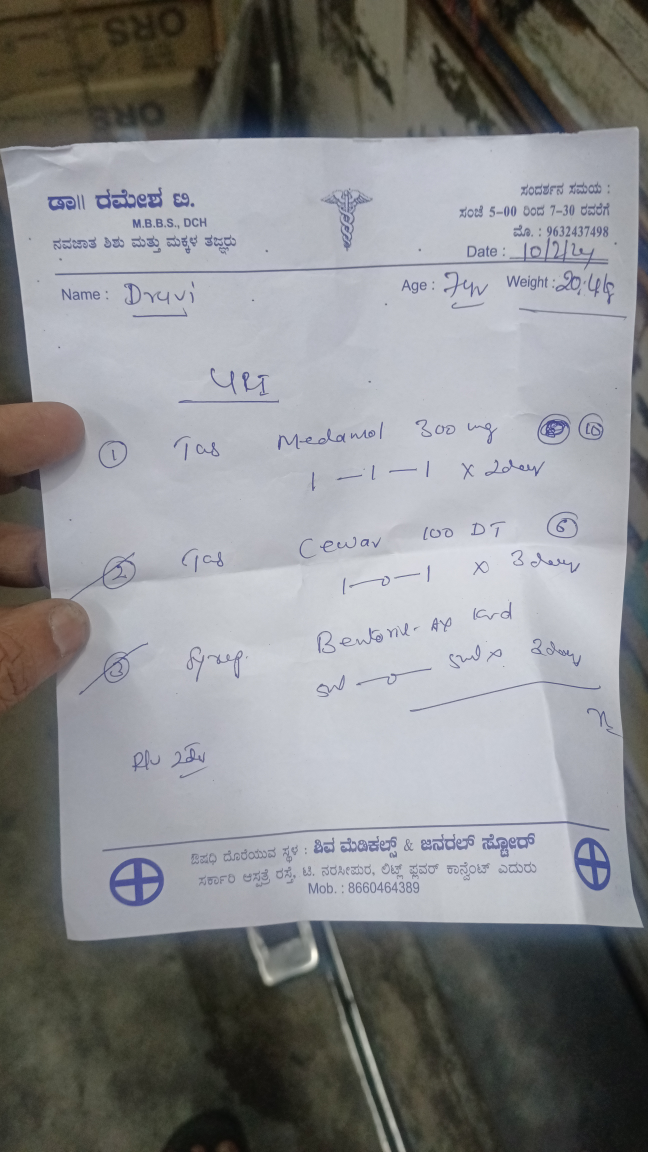 ORS
ORS
ಡಾ|| ರಮೇಶ ಟಿ.
M.B.B.S., DCH
ನವಜಾತ ಶಿಶು ಮತ್ತು ಮಕ್ಕಳ ತಜ್ಞರು
ಸಂದರ್ಶನ ಸಮಯ :
ಸಂಜೆ 5-00 ರಿಂದ 7-30 ರವರೆಗೆ
ಮೊ. : 9632437498
Date : 10/2/24
Name : Druvi Age : 7yr Weight : 20.4kg
URI
1 Tas Medamol 300 mg 10
1 — 1 — 1 x 2day
2 Tas 100 DT 6
1 — 0 — 1 x 3day
3 Syrup.
5ml — 0 — 5ml x 3day
ಔಷಧಿ ದೊರೆಯುವ ಸ್ಥಳ : ಶಿವ ಮೆಡಿಕಲ್ಸ್ & ಜನರಲ್ ಸ್ಟೋರ್
ಸರ್ಕಾರಿ ಆಸ್ಪತ್ರೆ ರಸ್ತೆ, ಟಿ. ನರಸೀಪುರ, ಲಿಟ್ಲ್ ಫ್ಲವರ್ ಕಾನ್ವೆಂಟ್ ಎದುರು
Mob. : 8660464389